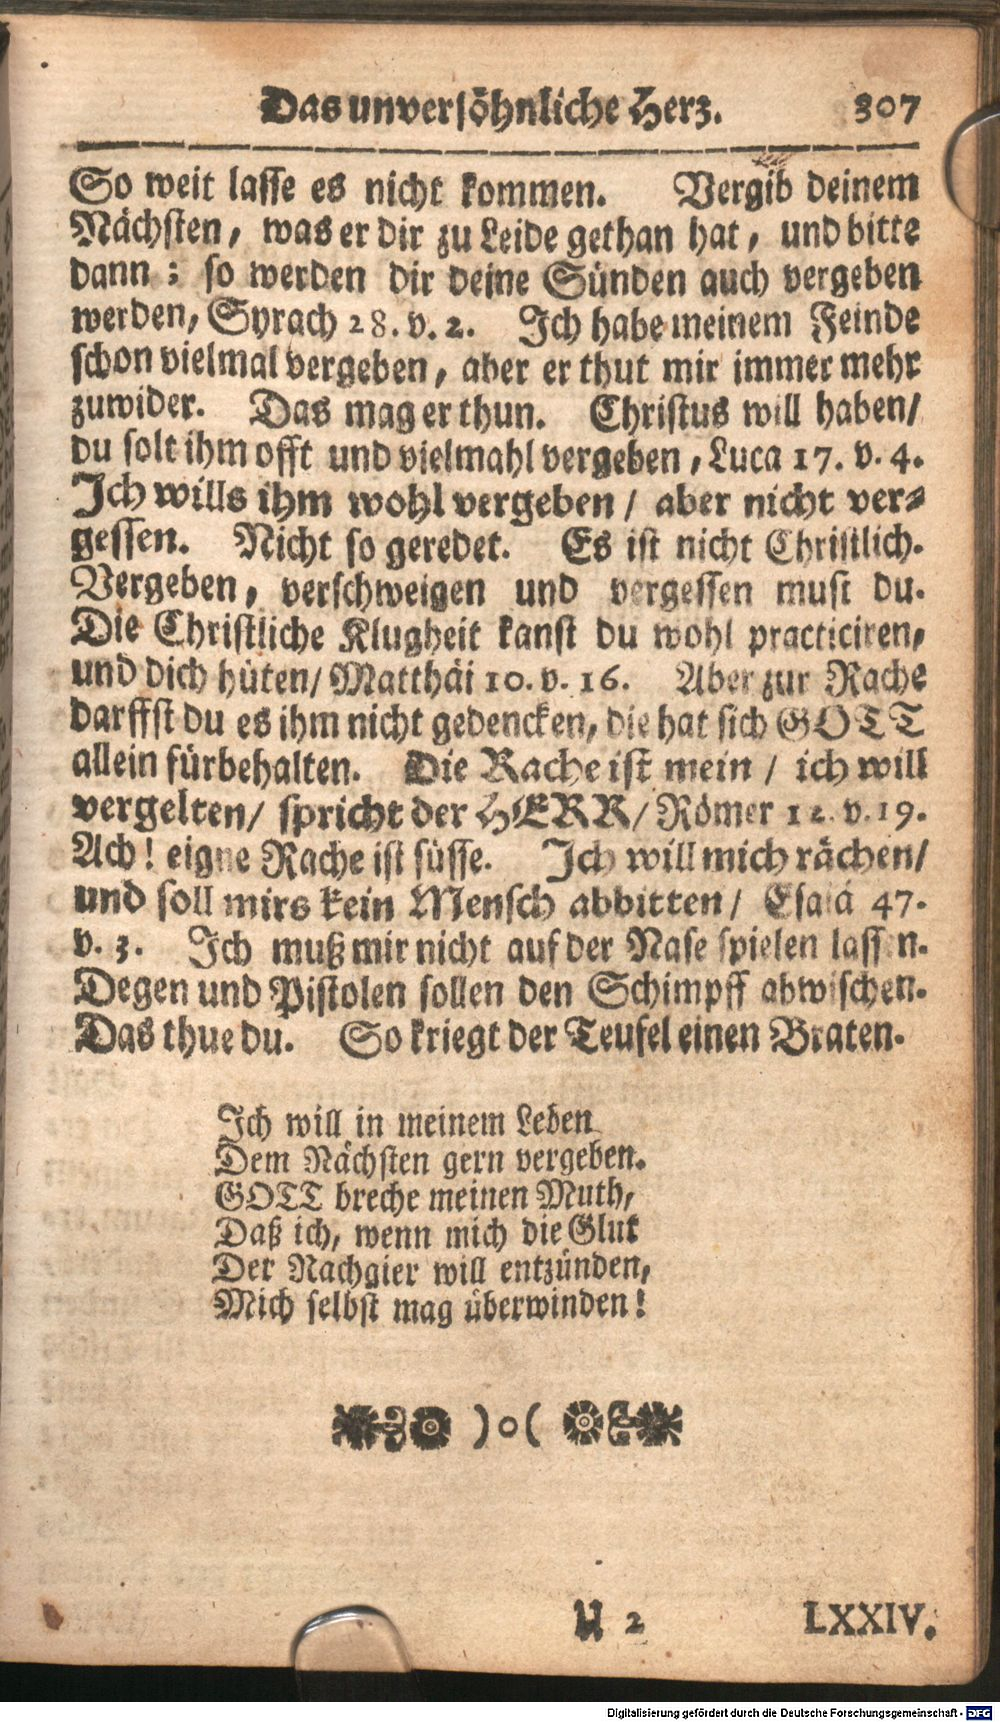 Das unversöhnliche Herz. 307
So weit lasse es nicht kommen. Vergib deinem
Nächsten, was er dir zu Leide gethan hat, und bitte
dann; so werden dir deine Sünden auch vergeben
werden, Syrach 28. v. 2. Ich habe meinem Feinde
schon vielmal vergeben, aber er thut mir immer mehr
zuwider. Das mag er thun. Christus will haben/
du solt ihm offt und vielmahl vergeben, Luca 17. v. 4.
Ich wills ihm wohl vergeben / aber nicht ver-
gessen. Nicht so geredet. Es ist nicht Christlich.
Vergeben, verschweigen und vergessen must du.
Die Christliche Klugheit kanst du wohl practiciren,
und dich hüten/ Matthäi 10. v. 16. Aber zur Rache
darffst du es ihm nicht gedencken, die hat sich GOTT
allein fürbehalten. Die Rache ist mein / ich will
vergelten/ spricht der HERR/ Römer 12. v. 19.
Ach! eigne Rache ist süsse. Ich will mich rächen/
und soll mirs kein Mensch abbitten / Esaiä 47.
v. 3. Ich muß mir nicht auf der Nase spielen lassen.
Degen und Pistolen sollen den Schimpff abwischen.
Das thue du. So kriegt der Teufel einen Braten.
Ich will in meinem Leben
Dem Nächsten gern vergeben.
GOTT breche meinen Muth,
Daß ich, wenn mich die Glut
Der Nachgier will entzünden,
Mich selbst mag überwinden!
)o(
U 2 LXXIV.
Digitalisierung gefördert durch die Deutsche Forschungsgemeinschaft - DFG